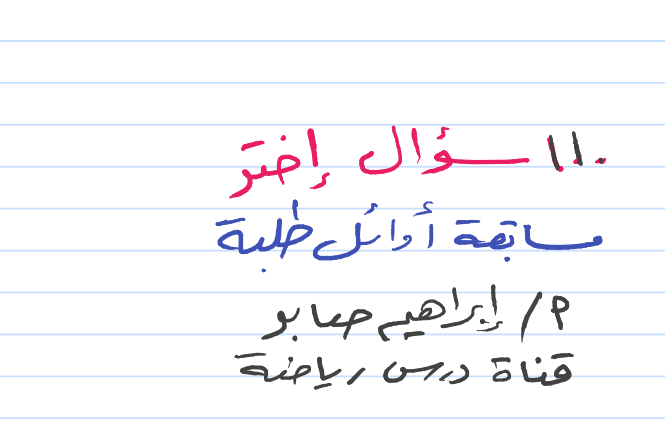 ١١٠ سؤال إختر
مسابقة أوائل طلبة
م/ إبراهيم صابر
قناة درس رياضة